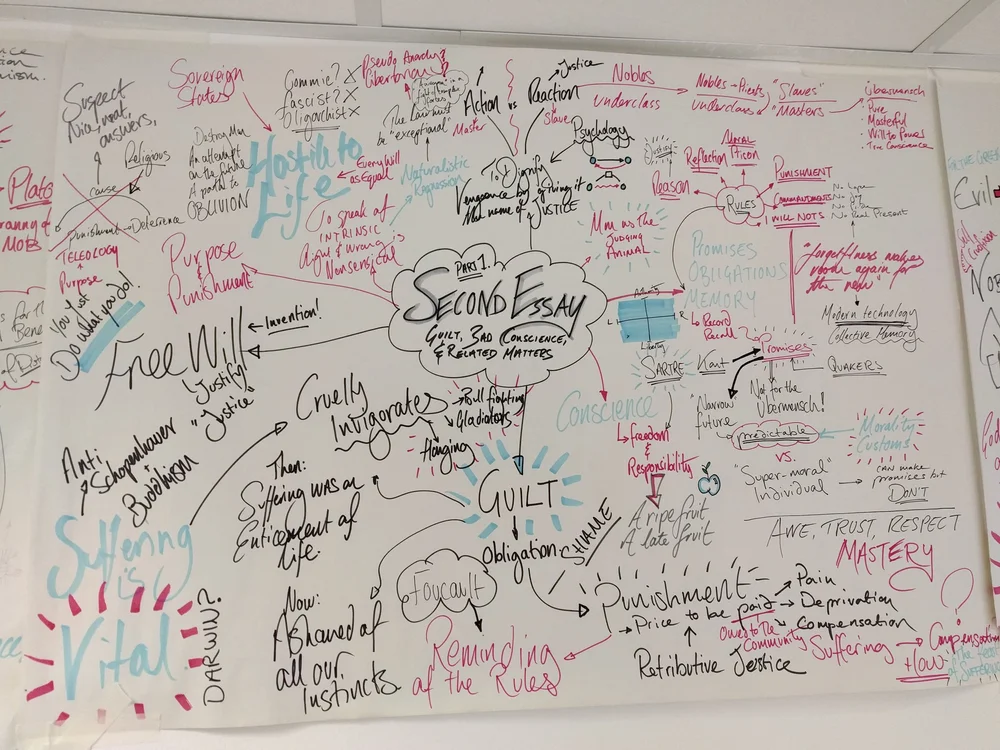 Suspect
Nice, neat,
answers,
Religious
cause
Punishment → Deterence
TELEOLOGY
Purpose
You just
Do what you do!
Plato
MOBS
Sovereign
States
Destroy Man
An attempt
on the future
A portal to
OBLIVION
Hostile to
Life
Commie? X
Fascist? X
Oligarchist X
Pseudo Anarchy?
Libertarian?
The Law must
be "exceptional"
Every Will
as Equal
Naturalistic
Regression
To speak of
INTRINSIC
Right & wrong is
Nonsensical
Purpose
&
Punishment
Action vs Reaction
Master
Slave
Justice
Psychology
To Dignify
Vengeance by giving it
the name of JUSTICE
Nobles
underclass
Nobles → Priests
Underclass
"Slaves"
"Masters"
Übermensch
Pure
Masterful
Will to Power
True Conscience
Reason
Reflection
MORAL
PUNISHMENT
RULES
COMMANDMENTS
I WILL NOTS
No Hope
No Joy
No Pride
No Real Present
Man as the
JUDGING
ANIMAL
PROMISES
OBLIGATIONS
MEMORY
Record
Recall
"forgetfulness makes
room again for
the new
Modern technology
Collective Memory
PART 1.
SECOND ESSAY
GUILT, BAD CONSCIENCE,
& RELATED MATTERS
L
R
Liberty
Free Will
← Invention!
"Justify
Justice"
SARTRE
Kant
Promises
QUAKERS
Not for the
Übermensch!
"Narrow
future
predictable
Morality
Customs
VS.
"Super-moral"
Individual
CAN make
promises but
DON'T
Conscience
Freedom
&
Responsibility
A ripe fruit
A late fruit
AWE, TRUST, RESPECT
MASTERY
Cruelty
Invigorates
Bull fighting
Gladiators
Hanging
Anti
Schopenhauer
&
Buddhism
Suffering
is
Vital
DARWIN?
Then:
Suffering was an
Enticement of
life.
Now:
Ashamed of
all our
Instincts
GUILT
Obligation
SHAME
Foucault
Reminding
of the Rules
Punishment
→ Price to be paid
Pain
Deprivation
Compensation
Owed to the
Community
Retributive Justice
Suffering
Compensation
How
?
Evil